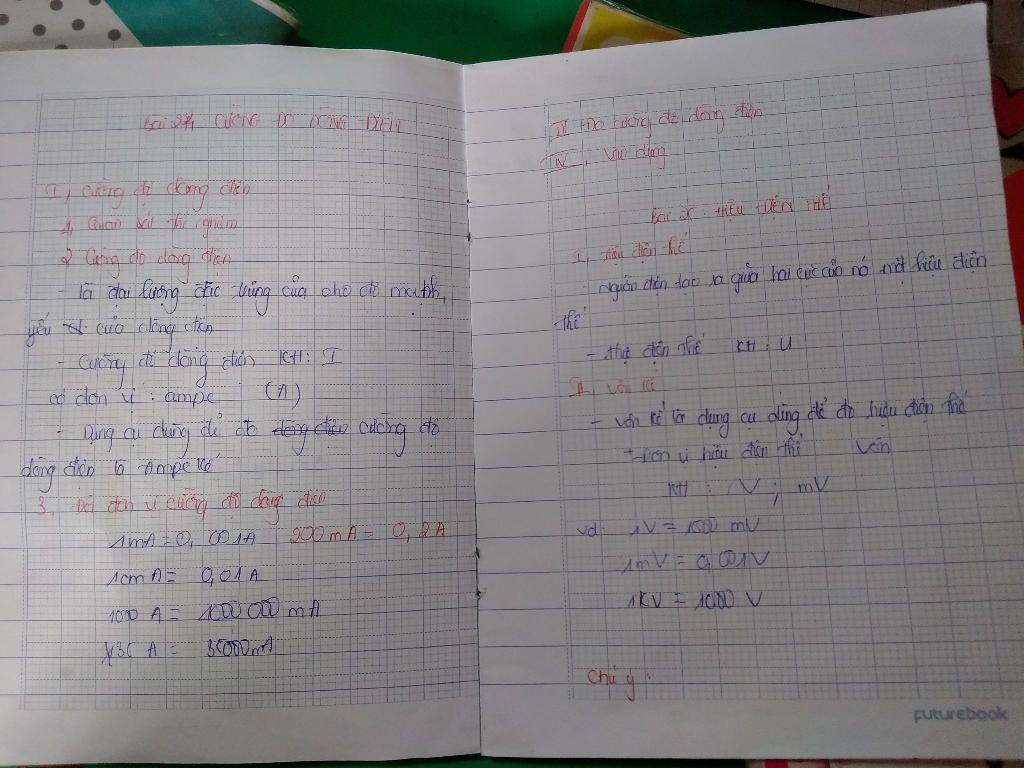 Bài 24, CƯỜNG ĐỘ DÒNG ĐIỆN
I, Cường độ dòng điện
1, Quan sát thí nghiệm
2 Cường độ dòng điện
- là đại lượng đặc trưng của cho độ mạnh,
yếu của dòng điện
- Cường độ dòng điện KH: I
có đơn vị : ampe (A)
- Dụng cụ dùng để đo dòng điện cường độ
dòng điện là Ampe kế
3, Đổi đơn vị cường độ dòng điện
1mA = 0,001A 200mA = 0,2A
10mA = 0,01A
1000 A = 1000 000 mA
A = 35000mA
III Đo cường độ dòng điện
IV, Vận dụng
Bài 25: HIỆU ĐIỆN THẾ
I, Hiệu điện thế
- nguồn điện tạo ra giữa hai cực của nó một hiệu điện
thế
- Hiệu điện thế KH : U
II, Vôn kế
- Vôn kế là dụng cụ dùng để đo hiệu điện thế
+ Đơn vị hiệu điện thế Vôn
KH : V ; mV
vd: 1V = 1000 mV
1mV = 0,001V
1KV = 1000 V
Chú ý:
futurebook